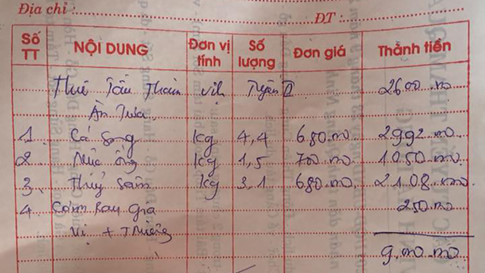 Địa chỉ: ĐT:
Số TT NỘI DUNG Đơn vị tính Số lượng Đơn giá Thành tiền
Thuê Tàu Tham Vịnh Tuyến II 2600.000
Ăn Trưa
1 Cá Song kg 4,4 680.000 2992.000
2 Mực ống kg 1,5 700.000 1050.000
3 kg 3,1 680.000 2108.000
4 Cơm Rau Gia 250.000
Vị +
9.000.000